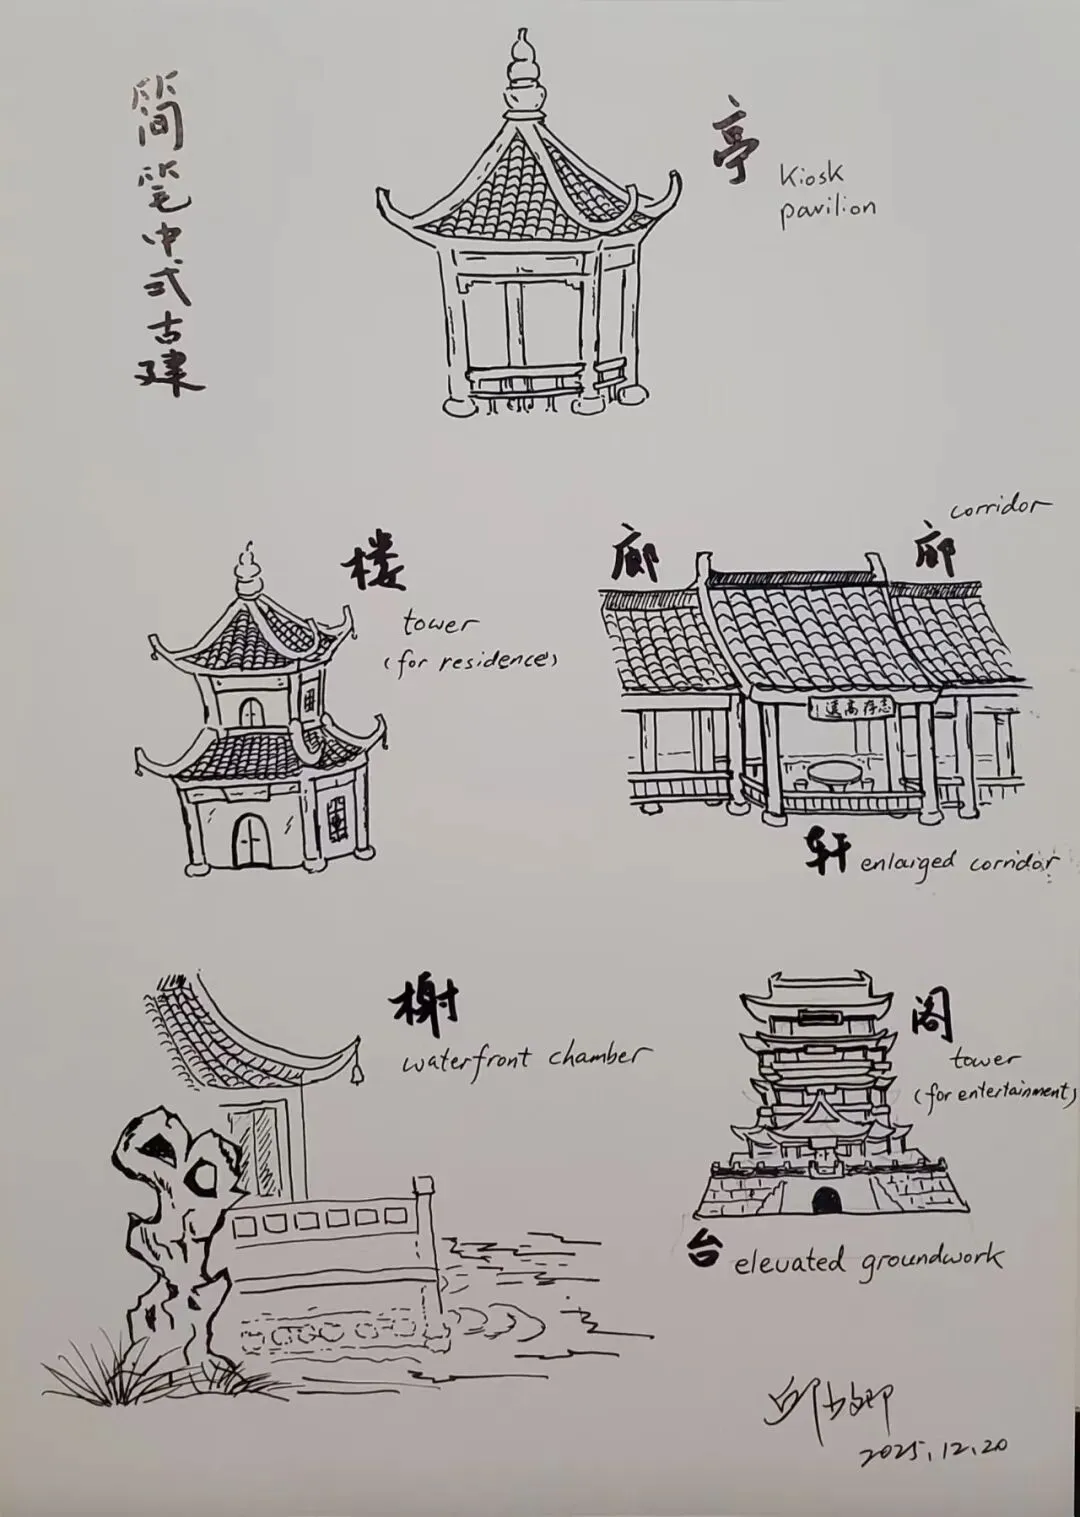 简笔中式古建
亭
kiosk
pavilion
corridor
楼
廊
廊
tower
(for residence)
志存高远
轩 enlarged corridor
榭
阁
waterfront chamber
tower
(for entertainment)
台 elevated groundwork
2025.12.20